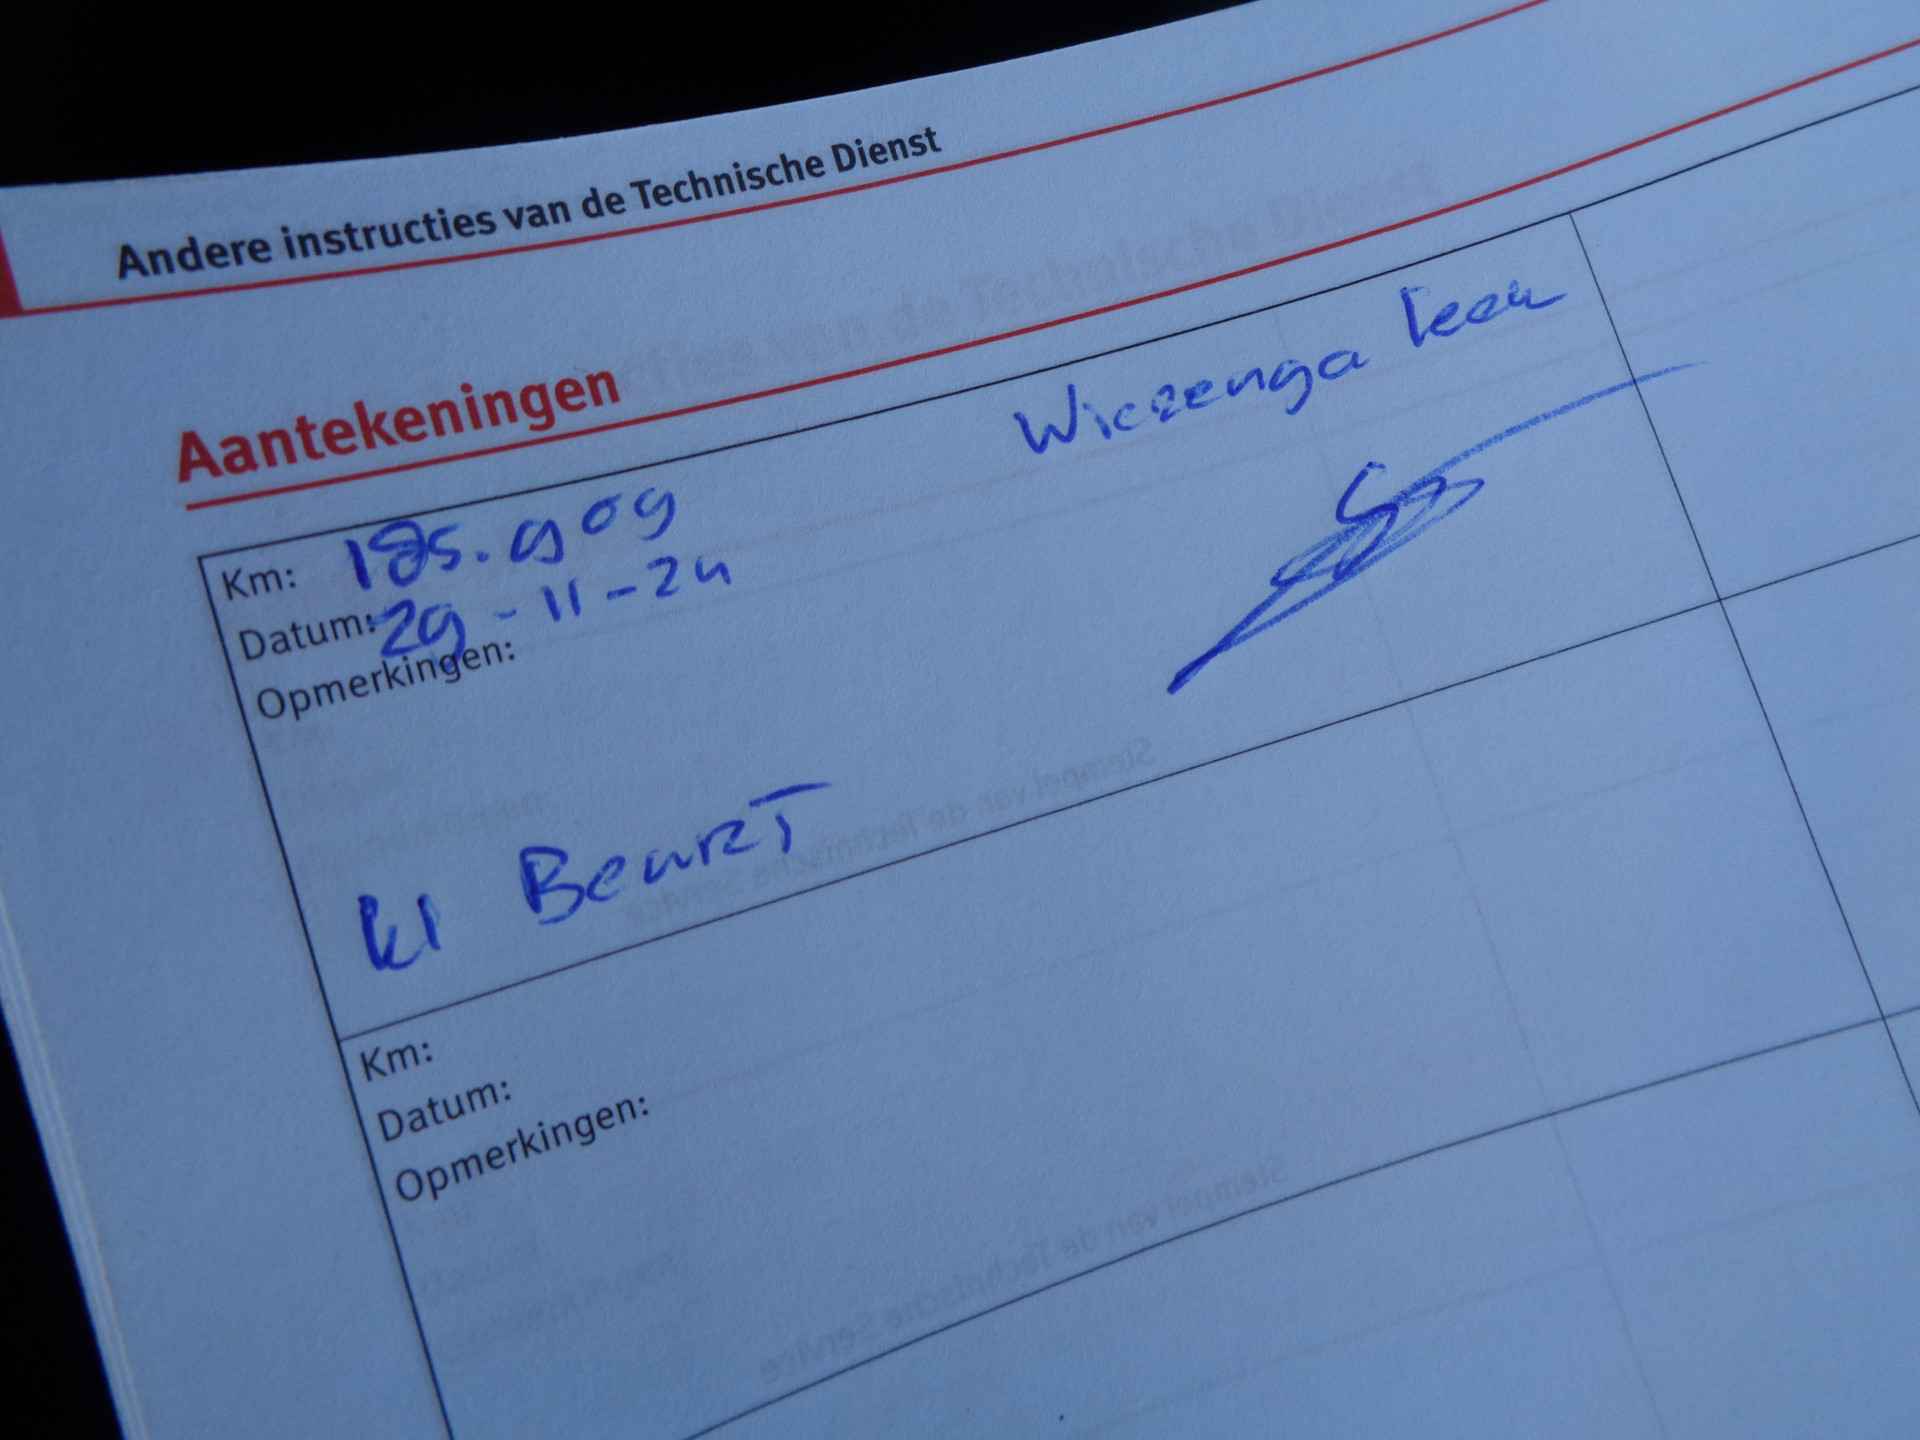 Andere instructies van de Technische Dienst
Aantekeningen
Km: 185.909
Wiezenga Leek
Datum: 29-11-24
Opmerkingen:
kl Beurt
Km:
Datum:
Opmerkingen: